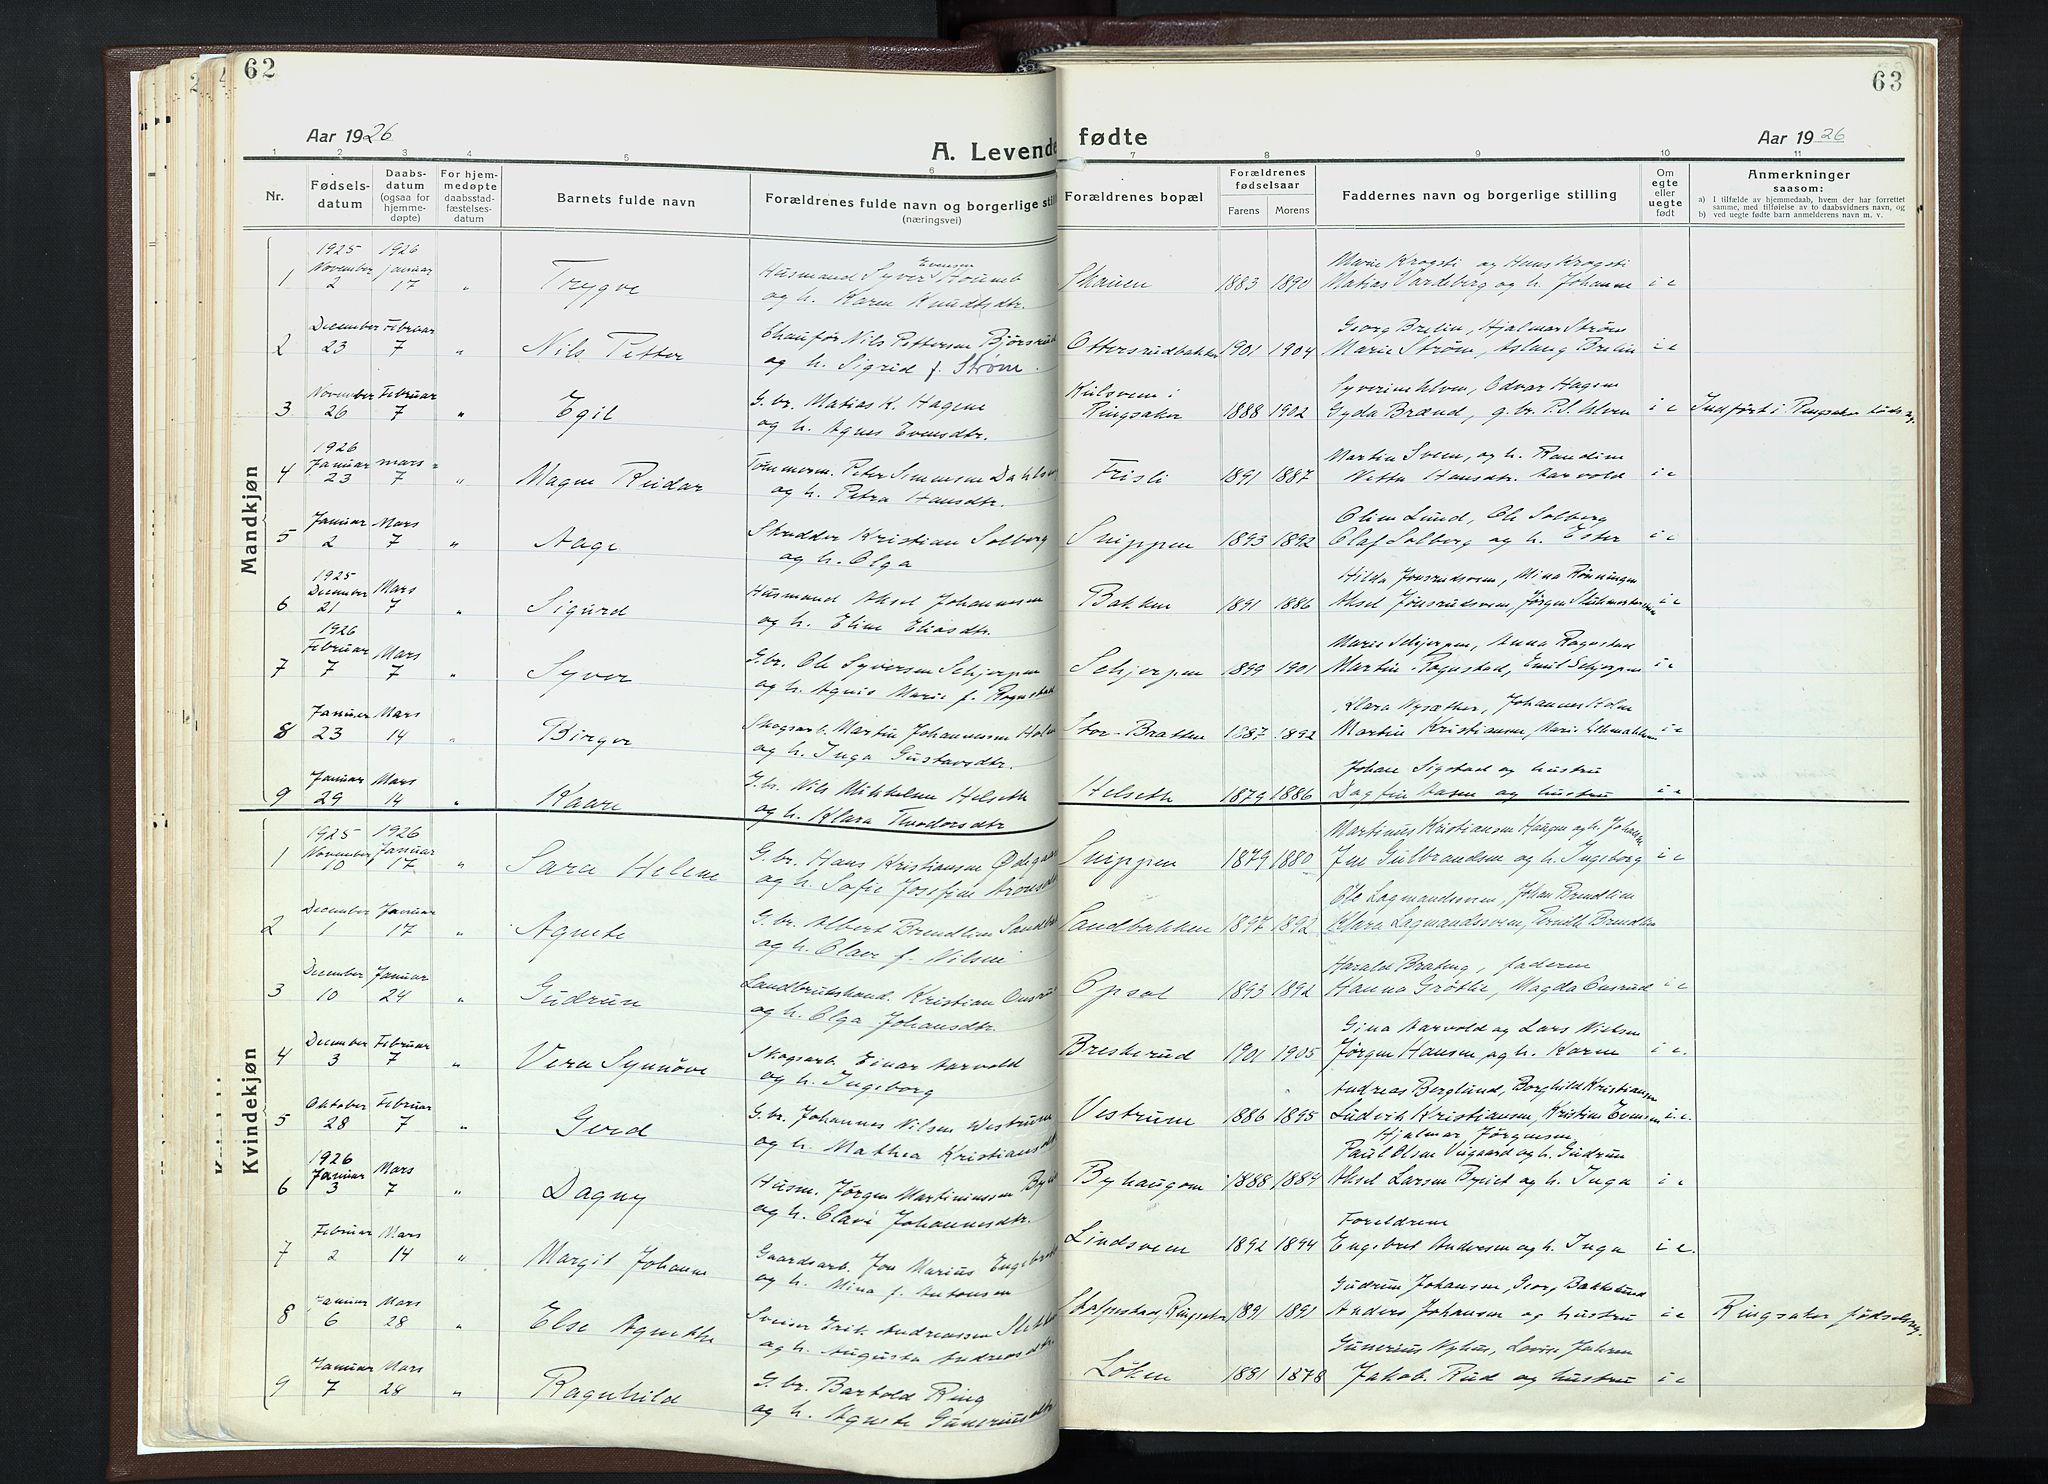 62
63
Aar 1926
A. Levende
fødte
Aar 1926
1 2 3 4 5 6 7 8 9 10 11
Nr.
Fødsels-
datum
Daabs-
datum
(ogsaa for
hjemme-
døpte)
For hjem-
medøpte
daabsstad-
fæstelses-
datum
Barnets fulde navn
Forældrenes fulde navn og borgerlige still
(næringsvei)
Forældrenes bopæl
Forældrenes
fødselsaar
Farens Morens
Faddernes navn og borgerlige stilling
Om
egte
eller
uegte
født
Anmerkninger
saasom:
a) I tilfælde av hjemmedaab, hvem der har forrettet
samme, med tilføielse av to daabsvidners navn, og
b) ved uegte fødte barn anmelderens navn m. v.
Mandkjøn
1925 1926 Evensen Marie Krogsti og Hans Krogsti
1 November 2 Januar 17 " Trygve Husmand Syver
og h. Karen Knudtsdtr. Skauen 1883 1890 Matias Vardeberg og h. Johanne i e
2 December 23 Februar 7 " Nils Petter Chaufør Nils Pettersen
og h. Sigrid f. Strøm. Ottersrudbakken 1901 1904 Georg Brelin, Hjalmar Strøm
Marie Strøm, Aslaug Brelin i e
3 November 26 Februar 7 " Egil G.br. Matias K. Hagene
og h. Agnes Evensdtr. Kulsveen i
Ringsaker 1888 1902 Syverine Ulven, Odvar Hagene
Gyda Brænd, g.br. P.S. Ulven i e Indført i Ringsaker føds.reg.
1926
4 Januar 23 mars 7 " Magne Reidar Tømmerm. Peter Simensen
og h. Petra Hansdtr. Frisli 1891 1887 Martin Sveen, og h. Randine
Hansdtr. Aarvold i e
5 Januar 2 Mars 7 " Aage Skrædder Kristian Solberg
og h. Olga Snippen 1893 1892 Oline Lund, Ole Solberg
Olaf Solberg og h. Ester i e
1925
6 December 21 Mars 7 " Sigurd Husmand Aksel Johannesen
og h. Eline Eliasdtr. Bakken 1891 1886 Hilda Jønsrudsveen, Mina Rønningen
Aksel Jønsrudsveen, Jørgen i e
1926
7 Februar 7 Mars 7 " Syver G.br. Ole Syversen Schjerpen
og h. Agnes Marie f. Rognstad Schjerpen 1899 1901 Marie Schjerpen, Anna Rognstad
Martin Rognstad, Emil Schjerpen i e
8 Januar 23 Mars 14 " Birger Skogsarb. Martin Johannessen Holm
og h. Inga Gustavsdtr. Stor-Bratten 1887 1892 Klara Nysæther, Johannes Holm
Martin Kristiansen, Marie i e
9 Januar 29 Mars 14 " Kaare G.br. Nils Mikkelsen Helseth
og h. Klara Theodorsdtr Helseth 1879 1886 Johan Sigstad og hustru
Dagfin Aasen og hustru i e
Kvindekjøn
1925 1926
1 November 10 Januar 17 " Sara Helene G.br. Hans Kristiansen
og h. Sofie Josefine Snippen 1879 1880 Martinus Kristiansen Haugen og h. Johanne
Jens Gulbrandsen og h. Ingeborg i e
2 December 1 Januar 17 " Agnete G.br. Albert Brendlien
og h. Olave f. Nilsen Sandbakken 1897 1892 Ole Lagmandssveen, Johan Brendlien
Klara Lagmandssveen, Pernille Brendlien
3 December 10 Januar 24 " Gudrun Landbrukskand. Kristian Onsrud
og h. Olga Johansdtr. Opsal 1893 1892 Harald Brateng, faderen
Hanna Grøtlie, Magda Onsrud i e
4 December 3 Februar 7 " Vera Synnøve Skogsarb. Einar Aarvold
og h. Ingeborg Breskerud 1901 1905 Gina Aarvold og Lars Nielsen
Jørgen Hansen og h. Karen i e.
5 Oktober 28 Februar 7 " Gerd G.br. Johannes Nilsen Westrum
og h. Mathea Kristiansdtr Vestrum 1886 1895 Andreas Berglund, Borghild Kristiansen
Ludvik Kristiansen, Kristine Evensen i e.
Hjalmar Jørgensen
1926
6 Januar 3 Mars 7 " Dagny Husm. Jørgen Martiniussen
og h. Olava Johannesdtr. Byhaugom 1888 1884 Paul Olsen Viigaard og h. Gudrun
Aksel Larsen og h. Inga i e
7 Februar 2 Mars 14 " Margit Johanne Gaardsarb. Jon Marius
og h. Mina f. Antonsen Lindsveen 1892 1894 Foreldrene
Engebret Andersen og h. Inga i e.
8 Januar 6 Mars 28 " Else Agnethe Sveiser Erik Andreassen
og h. Augusta Andreasdtr. Stafsnstad, Ringsaker 1891 1891 Gudrun Johansen, Georg Bakkelund
Anders Johansen og hustru i e Ringsaker fødselsreg.
9 Januar 7 Mars 28 " Ragnhild G.br. Bartold Ring
og h. Agnete Guneriusdtr Løken 1881 1878 Gunerius Nyhus, Lovise Jahren
Jakob Rud og hustru i e